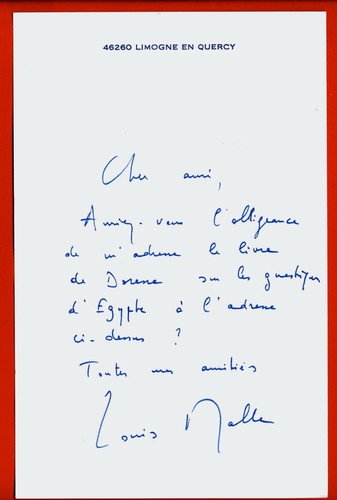 46260 LIMOGNE EN QUERCY
Cher ami,
Auriez-vous l'obligeance
de m'adresser le livre
de Doresse sur les gnostiques
d'Egypte à l'adresse
ci-dessus ?
Toutes mes amitiés
Louis Malle